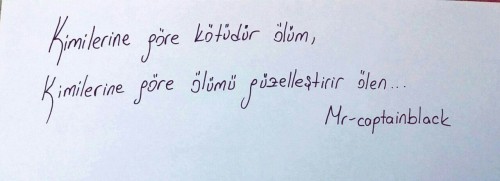 Kimilerine göre kötüdür ölüm,
Kimilerine göre ölümü güzelleştirir ölen...
Mr-captainblack